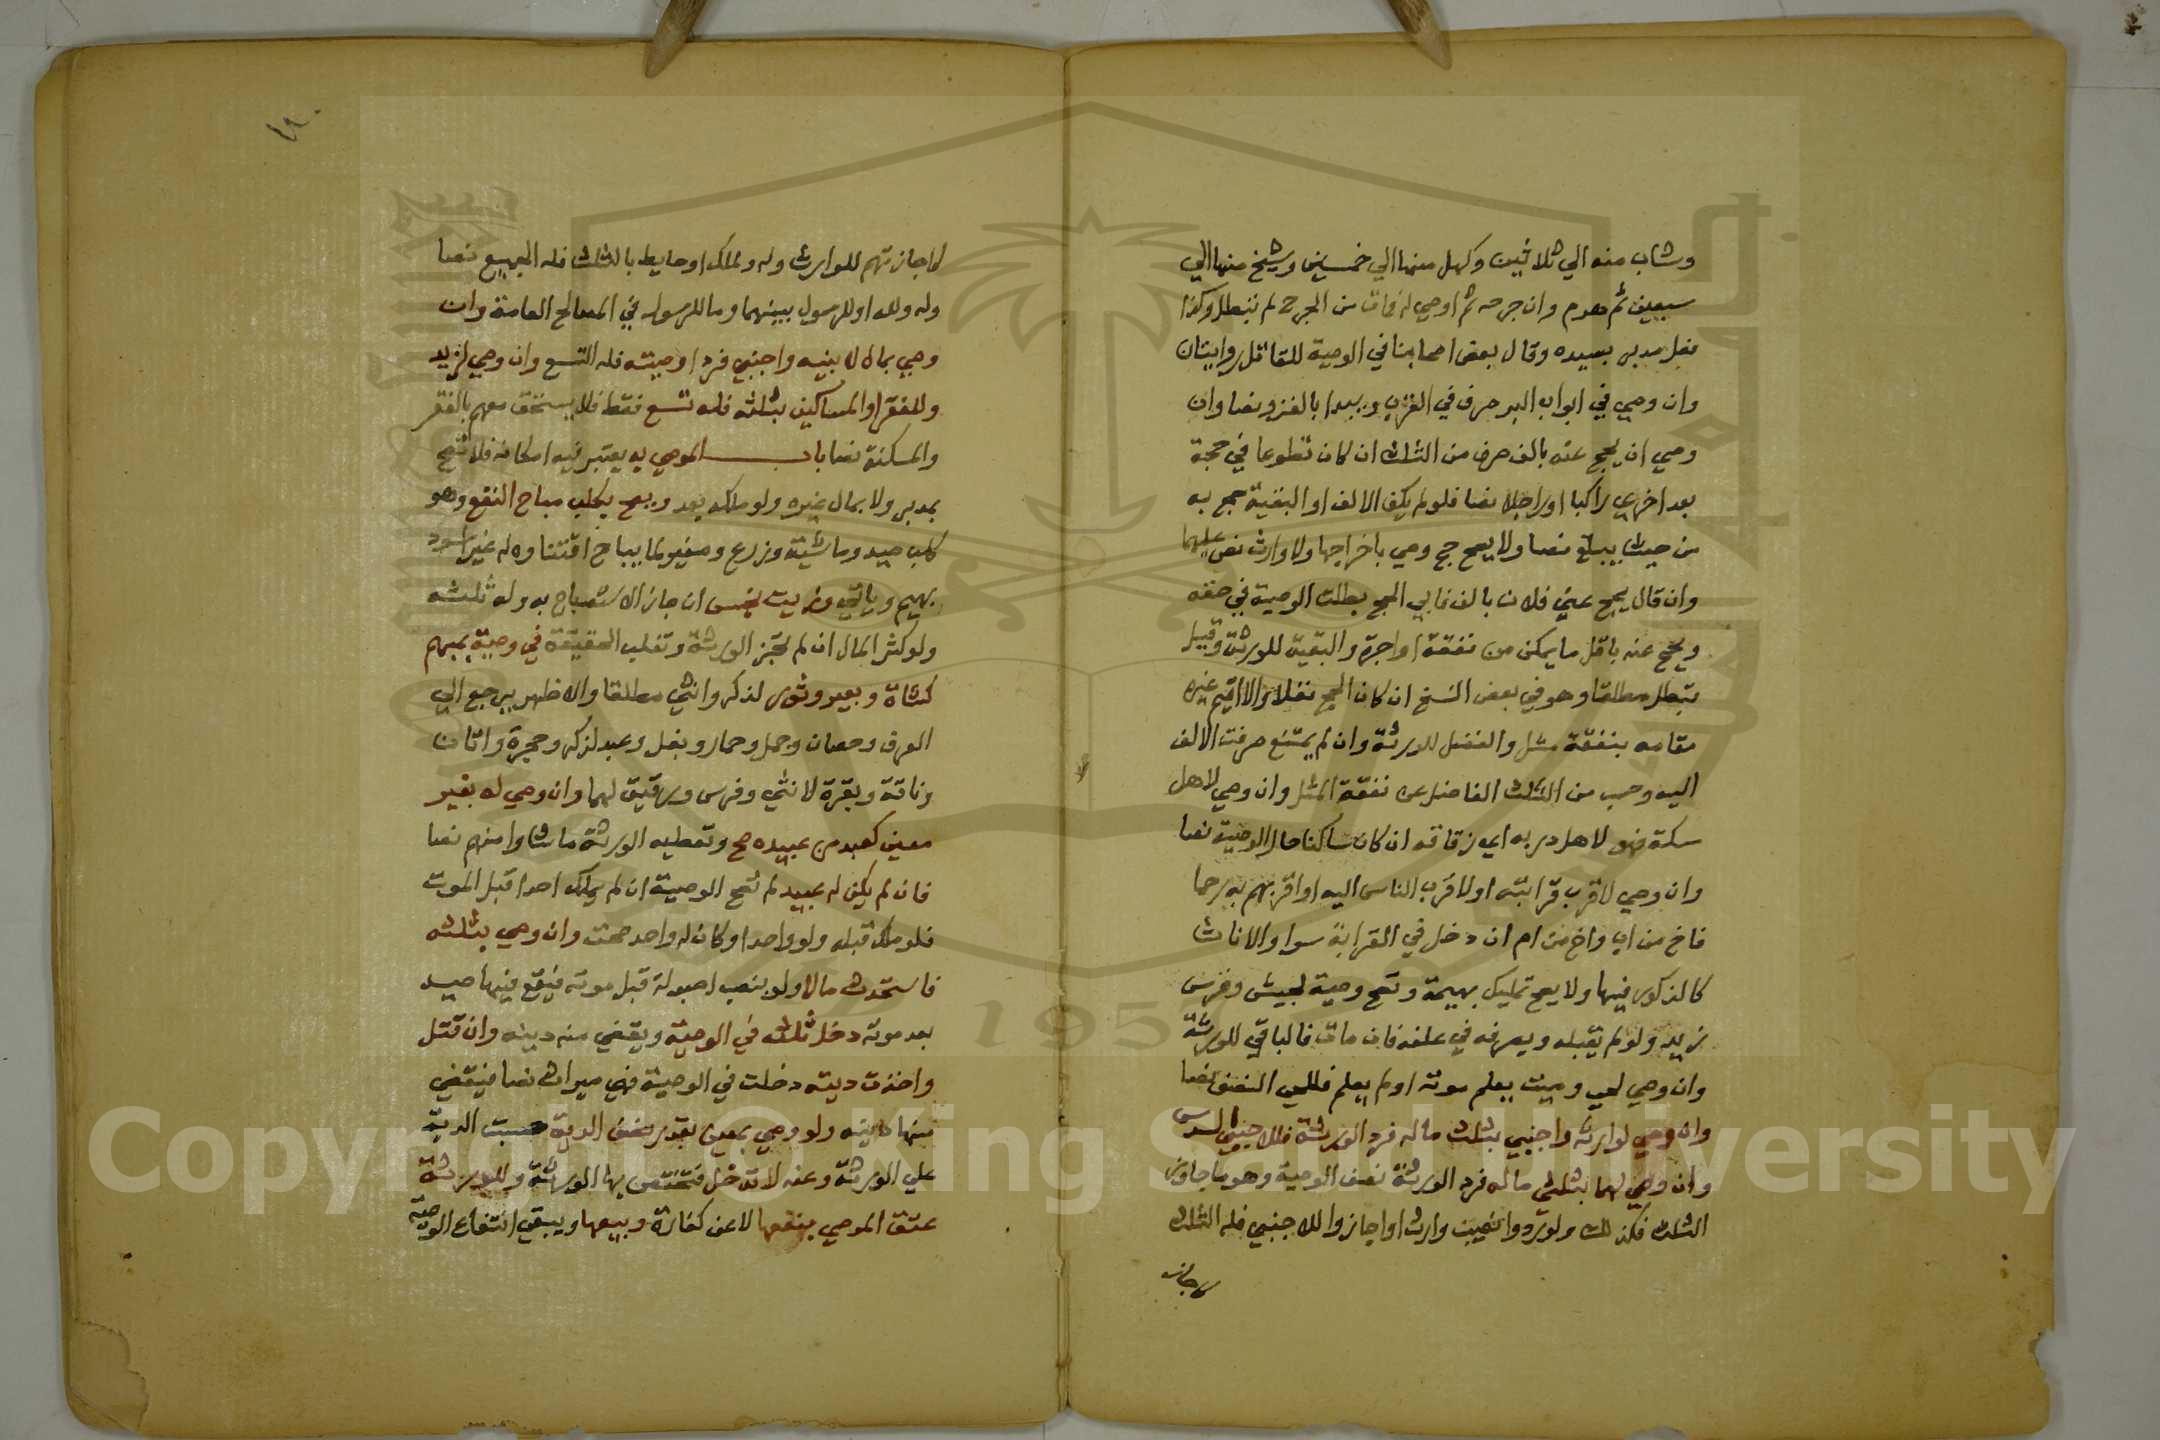 وشاب منه الي ثلاثين وكهل منها الي خمسين وشيخ منها الي
سبعين ثم هرم وان جرحه ثم اوصي له فمات من الجرح لم تبطل وكذا
فعل مدبر بسيده وقال بعض اصحابنا في الوصية للقاتل روايتان
وان وصي في ابواب البر صرف في القرب ويبدا بالغزو نصا وان
وصي ان يحج عنه بالف صرف من الثلث ان كان تطوعا في حجة
بعد اخري راكبا او راجلا نصا فلو لم يكف الالف او البقية حج به
من حيث يبلغ نصا ولا يصح حج وصي باخراجها ولا وارث نص عليهما
وان قال يحج عني فلان بالف فابي الحج بطلت الوصية في حقه
ويحج عنه باقل ما يمكن من نفقة او اجرة والبقية للورثة وقيل
تبطل مطلقا وهو في بعض النسخ ان كان الحج نفلا والا اقيم غيره
مقامه بنفقة مثل والفضل للورثة وان لم يمتنع صرفت الالف
اليه وحسب من الثلث الفاضل عن نفقة المثل وان وصي لاهل
سكة فهو لاهل دربه اي زقاقه ان كان ساكنا حال الوصية نصا
وان وصي لاقرب قرابته او لاقرب الناس اليه او اقربهم به رحما
فاخ من اب واخ من ام ان دخل في القرابة سوا والاناث
كالذكور فيها ولا يصح تمليك بهيمة وتصح وصية لجيش وفرس
زيد ولو لم يقبله ويصرفه في علفه فان مات فالباقي للورثة
وان وصي لحي وميت يعلم موته او لم يعلم فللحي النصف نصا
وان وصي لوارثه واجنبي بثلث ماله فرد الورثة فللاجنبي السدس
وان وصي لهما بثلثي ماله فرد الورثة نصف الوصية وهو ما جاوز
الثلث فكذلك ولو ردوا نصيب وارث او اجازوا للاجنبي فله الثلث
كاجاز
١٨٠
كاجازتهم للوارث وله ولملك او حايط بالثلث فله الجميع نصا
وله ولله او للرسول بينهما وما للرسول في المصالح العامة وان
وصي بماله لابنيه واجنبي فردا وصيته فله التسع وان وصي لزيد
وللفقرا والمساكين بثلثه فله تسع فقط فلا يستحق معهم بالفقر
والمسكنة نصا باب الموصي به يعتبر فيه امكانه فلا تصح
بمدبر ولا بمال غيره ولو ملكه بعد ويصح بكلب مباح النفع وهو
كلب صيد وماشية وزرع وصغير لما يباح اقتناوه له غير اسود
بهيم وياتي وزيت نجس ان جاز الاستصباح به وله ثلثه
ولو كثر المال ان لم تجز الورثة وتغلب الحقيقة في وصية بمبهم
كشاة وبعير وثور لذكر وانثي مطلقا والاظهر يرجع الي
العرف وحصان وجمل وحمار وبغل وعبد لذكر وحجرة واتان
وناقة وبقرة لانثي وفرس ورقيق لهما وان وصي له بغير
معين كعبد من عبيده صح وتعطيه الورثة ما شاوا منهم نصا
فان لم يكن له عبيد لم تصح الوصية ان لم يملك احدا قبل الموت
فلو ملك قبله ولو واحدا وكان له واحد صحت وان وصي بثلثه
فاستحدث مالا ولو بنصب احبولة قبل موته فيقع فيها صيد
بعد موته دخل ثلثه في الوصية ويقضي منه دينه وان قتل
واخذت ديته دخلت في الوصية فهي ميراث نصا فيقضي
منها دينه ولو وصي بمعين بقدر نصف الدية حسبت الدية
علي الورثة وعنه لا تدخل فتختص بها الورثة وللورثة
عتق الموصي بنفعها لا عن كفارة وبيعها ويبقي انتفاع الوصية